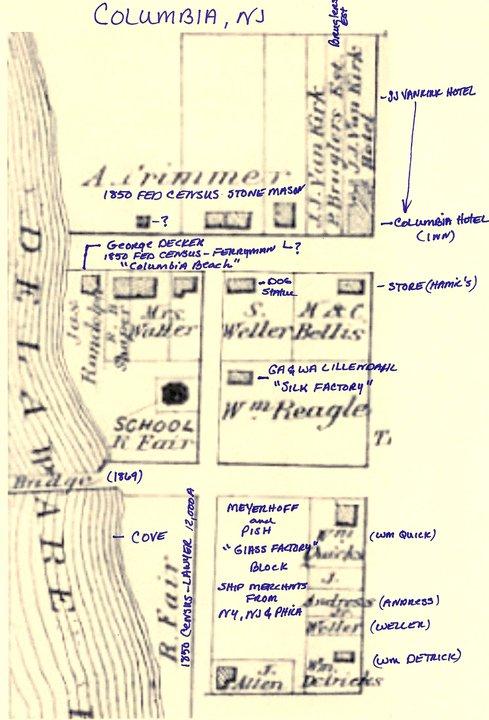 COLUMBIA, NJ
Bruglers
Est
J. J. Van Kirk
P. Bruglers Est
J. J. Van Kirk
Hotel
JJ VANKIRK HOTEL
A. Crimmer
1850 FED CENSUS STONE MASON
-?
COLUMBIA HOTEL
(INN)
GEORGE DECKER
1850 FED CENSUS - FERRYMAN
"COLUMBIA BEACH"
?
Jas
Randolph
Mrs
Walter
DOG
STATUE
S.
Weller
Bellis
STORE (HAMIC'S)
GA & WA LILLENDAHL
"SILK FACTORY"
Wm Reagle
SCHOOL
R Fair
DELAWARE
Bridge (1869)
COVE
R Fair
1850 CENSUS - LAWYER 12,000A
MEYERHOFF
and
PISH
"GLASS FACTORY"
BLOCK
SHIP MERCHANTS
FROM
NY, NJ & PHILA
Wm
Quirks
(WM QUICK)
J.
Andress
(ANDRESS)
Weller
(WELLER)
Wm.
Detricks
(WM DETRICK)
J.
Allen